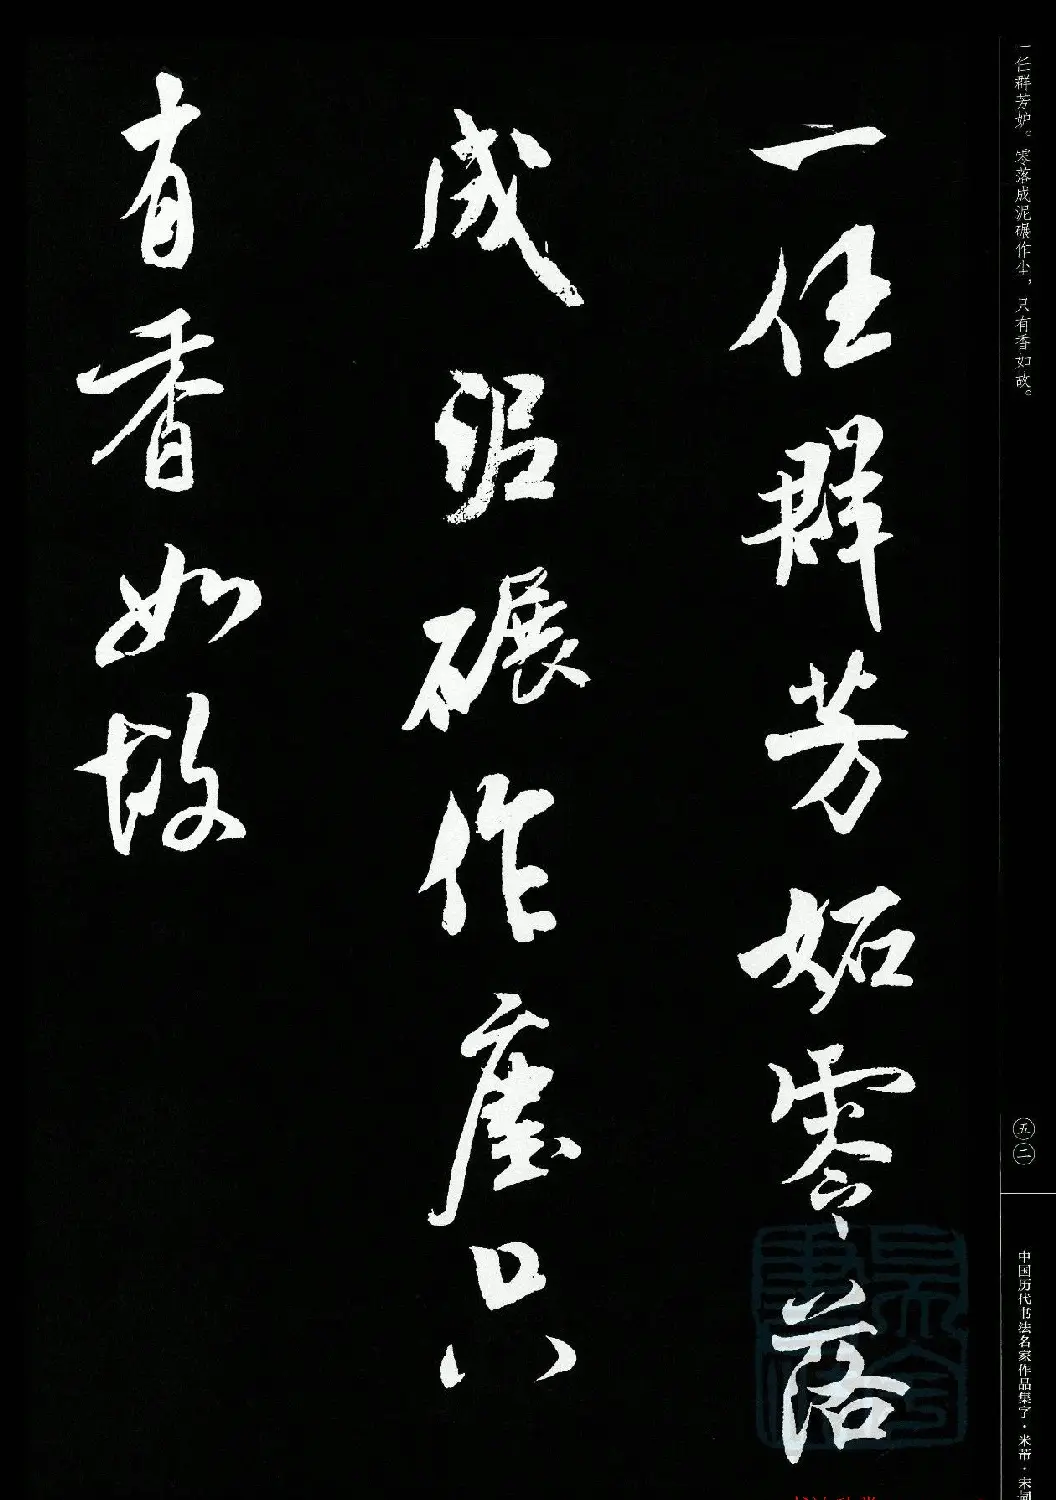 一任群芳妒。零落成泥碾作尘，只有香如故。
五二
中国历代书法名家作品集字·米芾·宋词
一任群芳妬零落
成泥碾作塵只
有香如故